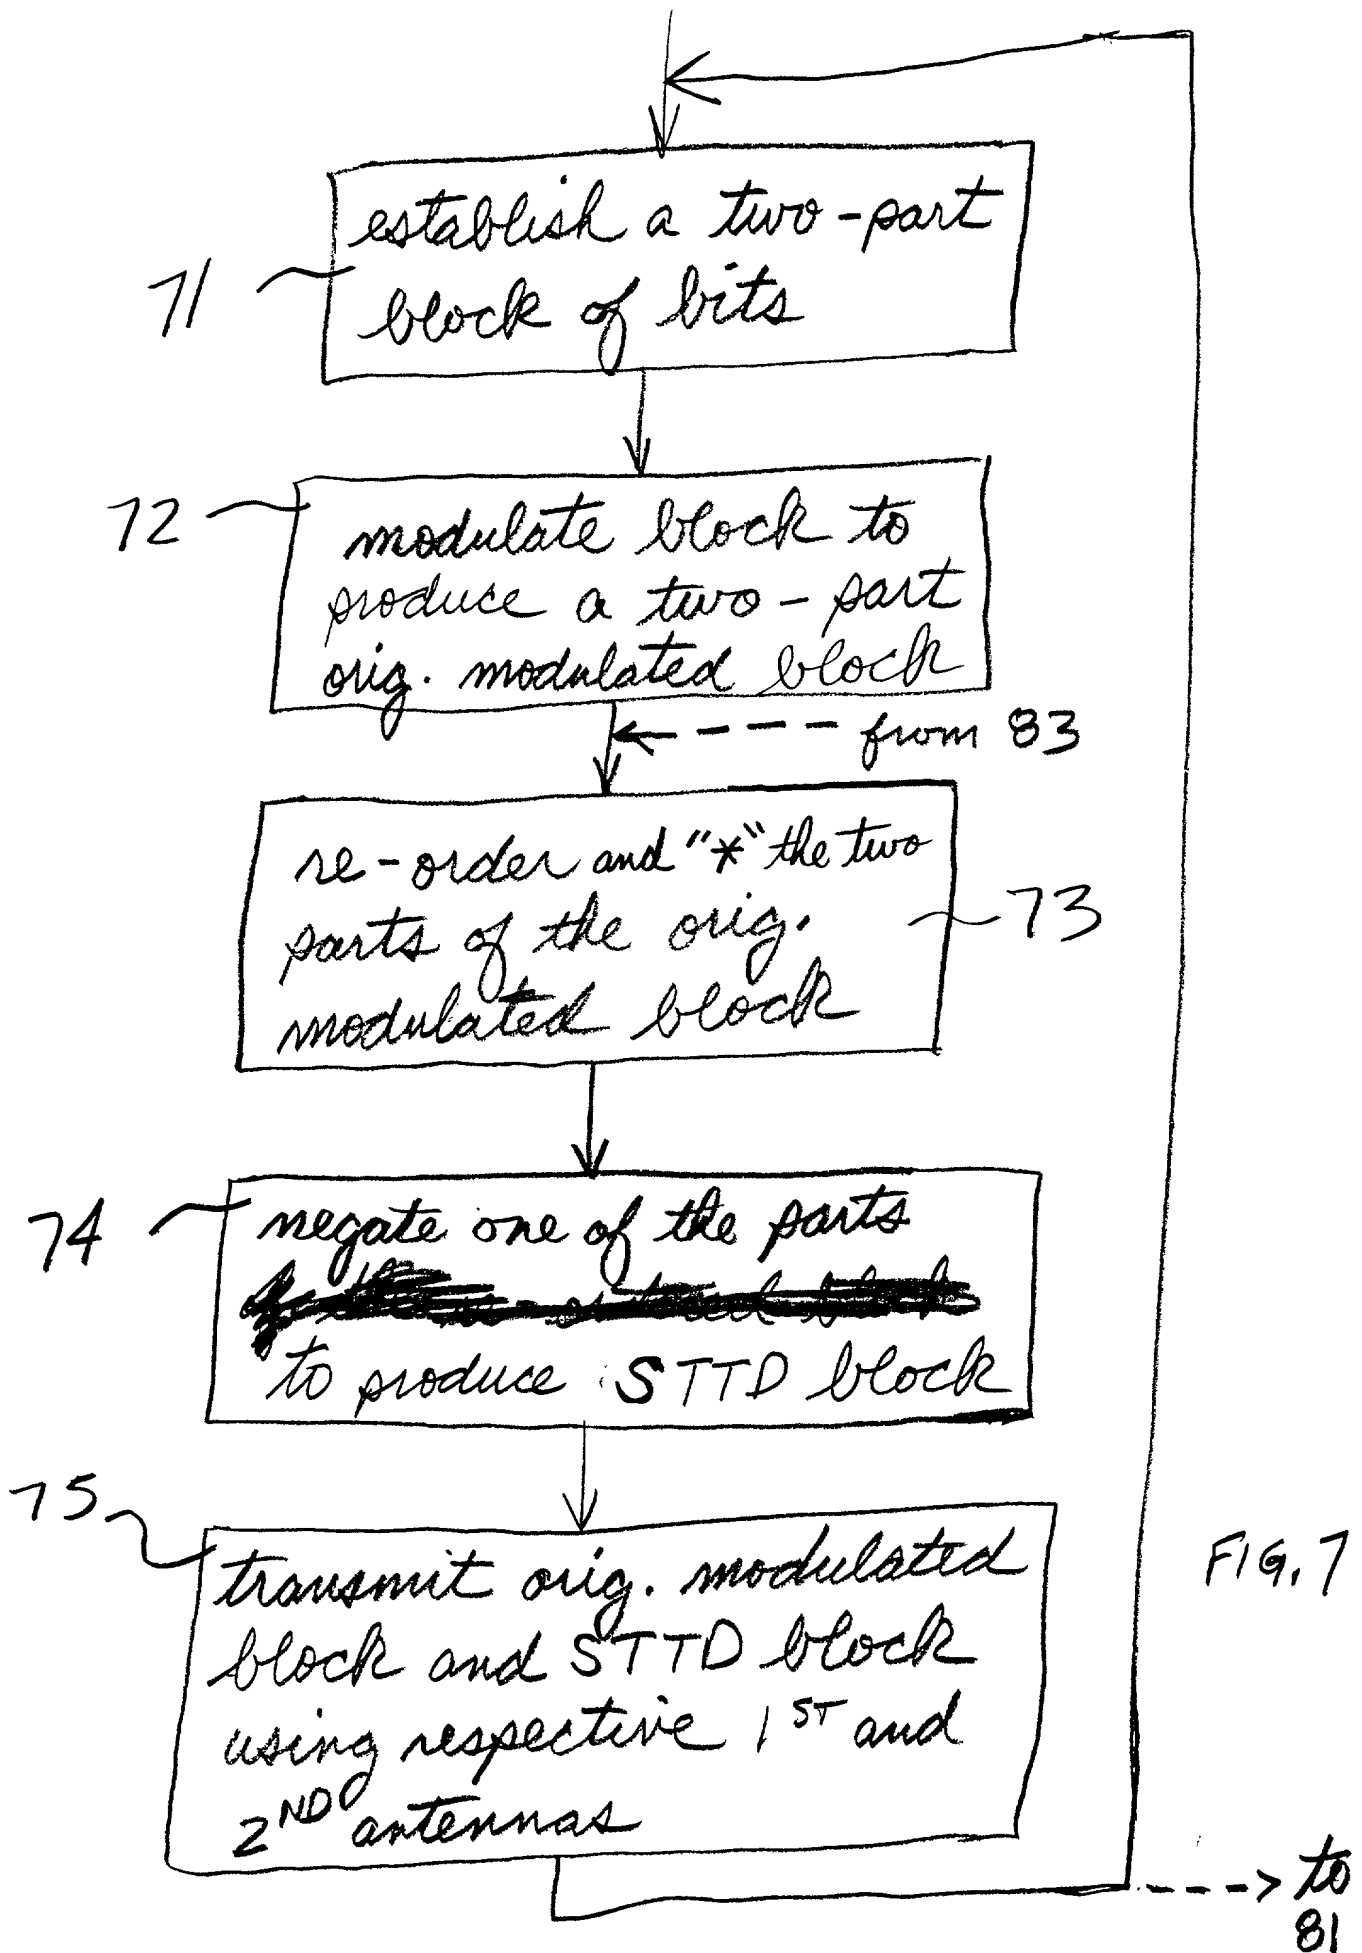 establish a two-part
71
block of bits
72
modulate block to
produce a two-part
orig. modulated block
from 83
re-order and "*" the two
73
parts of the orig.
modulated block
74
negate one of the parts
to produce STTD block
75
transmit orig. modulated
FIG. 7
block and STTD block
using respective 1ST and
2ND antennas
to
81